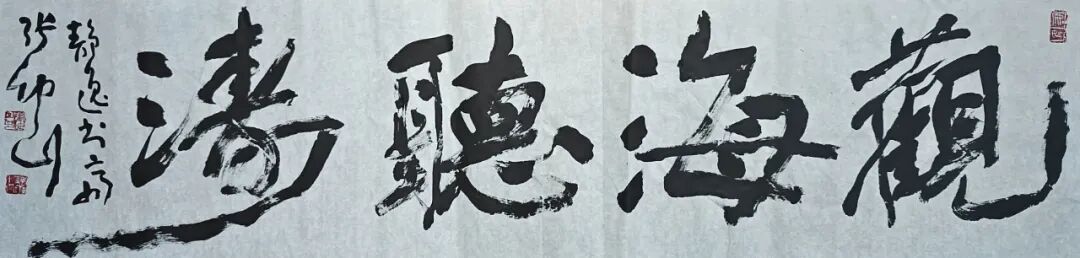 觀海聽濤
靜逸書齋
張仲山